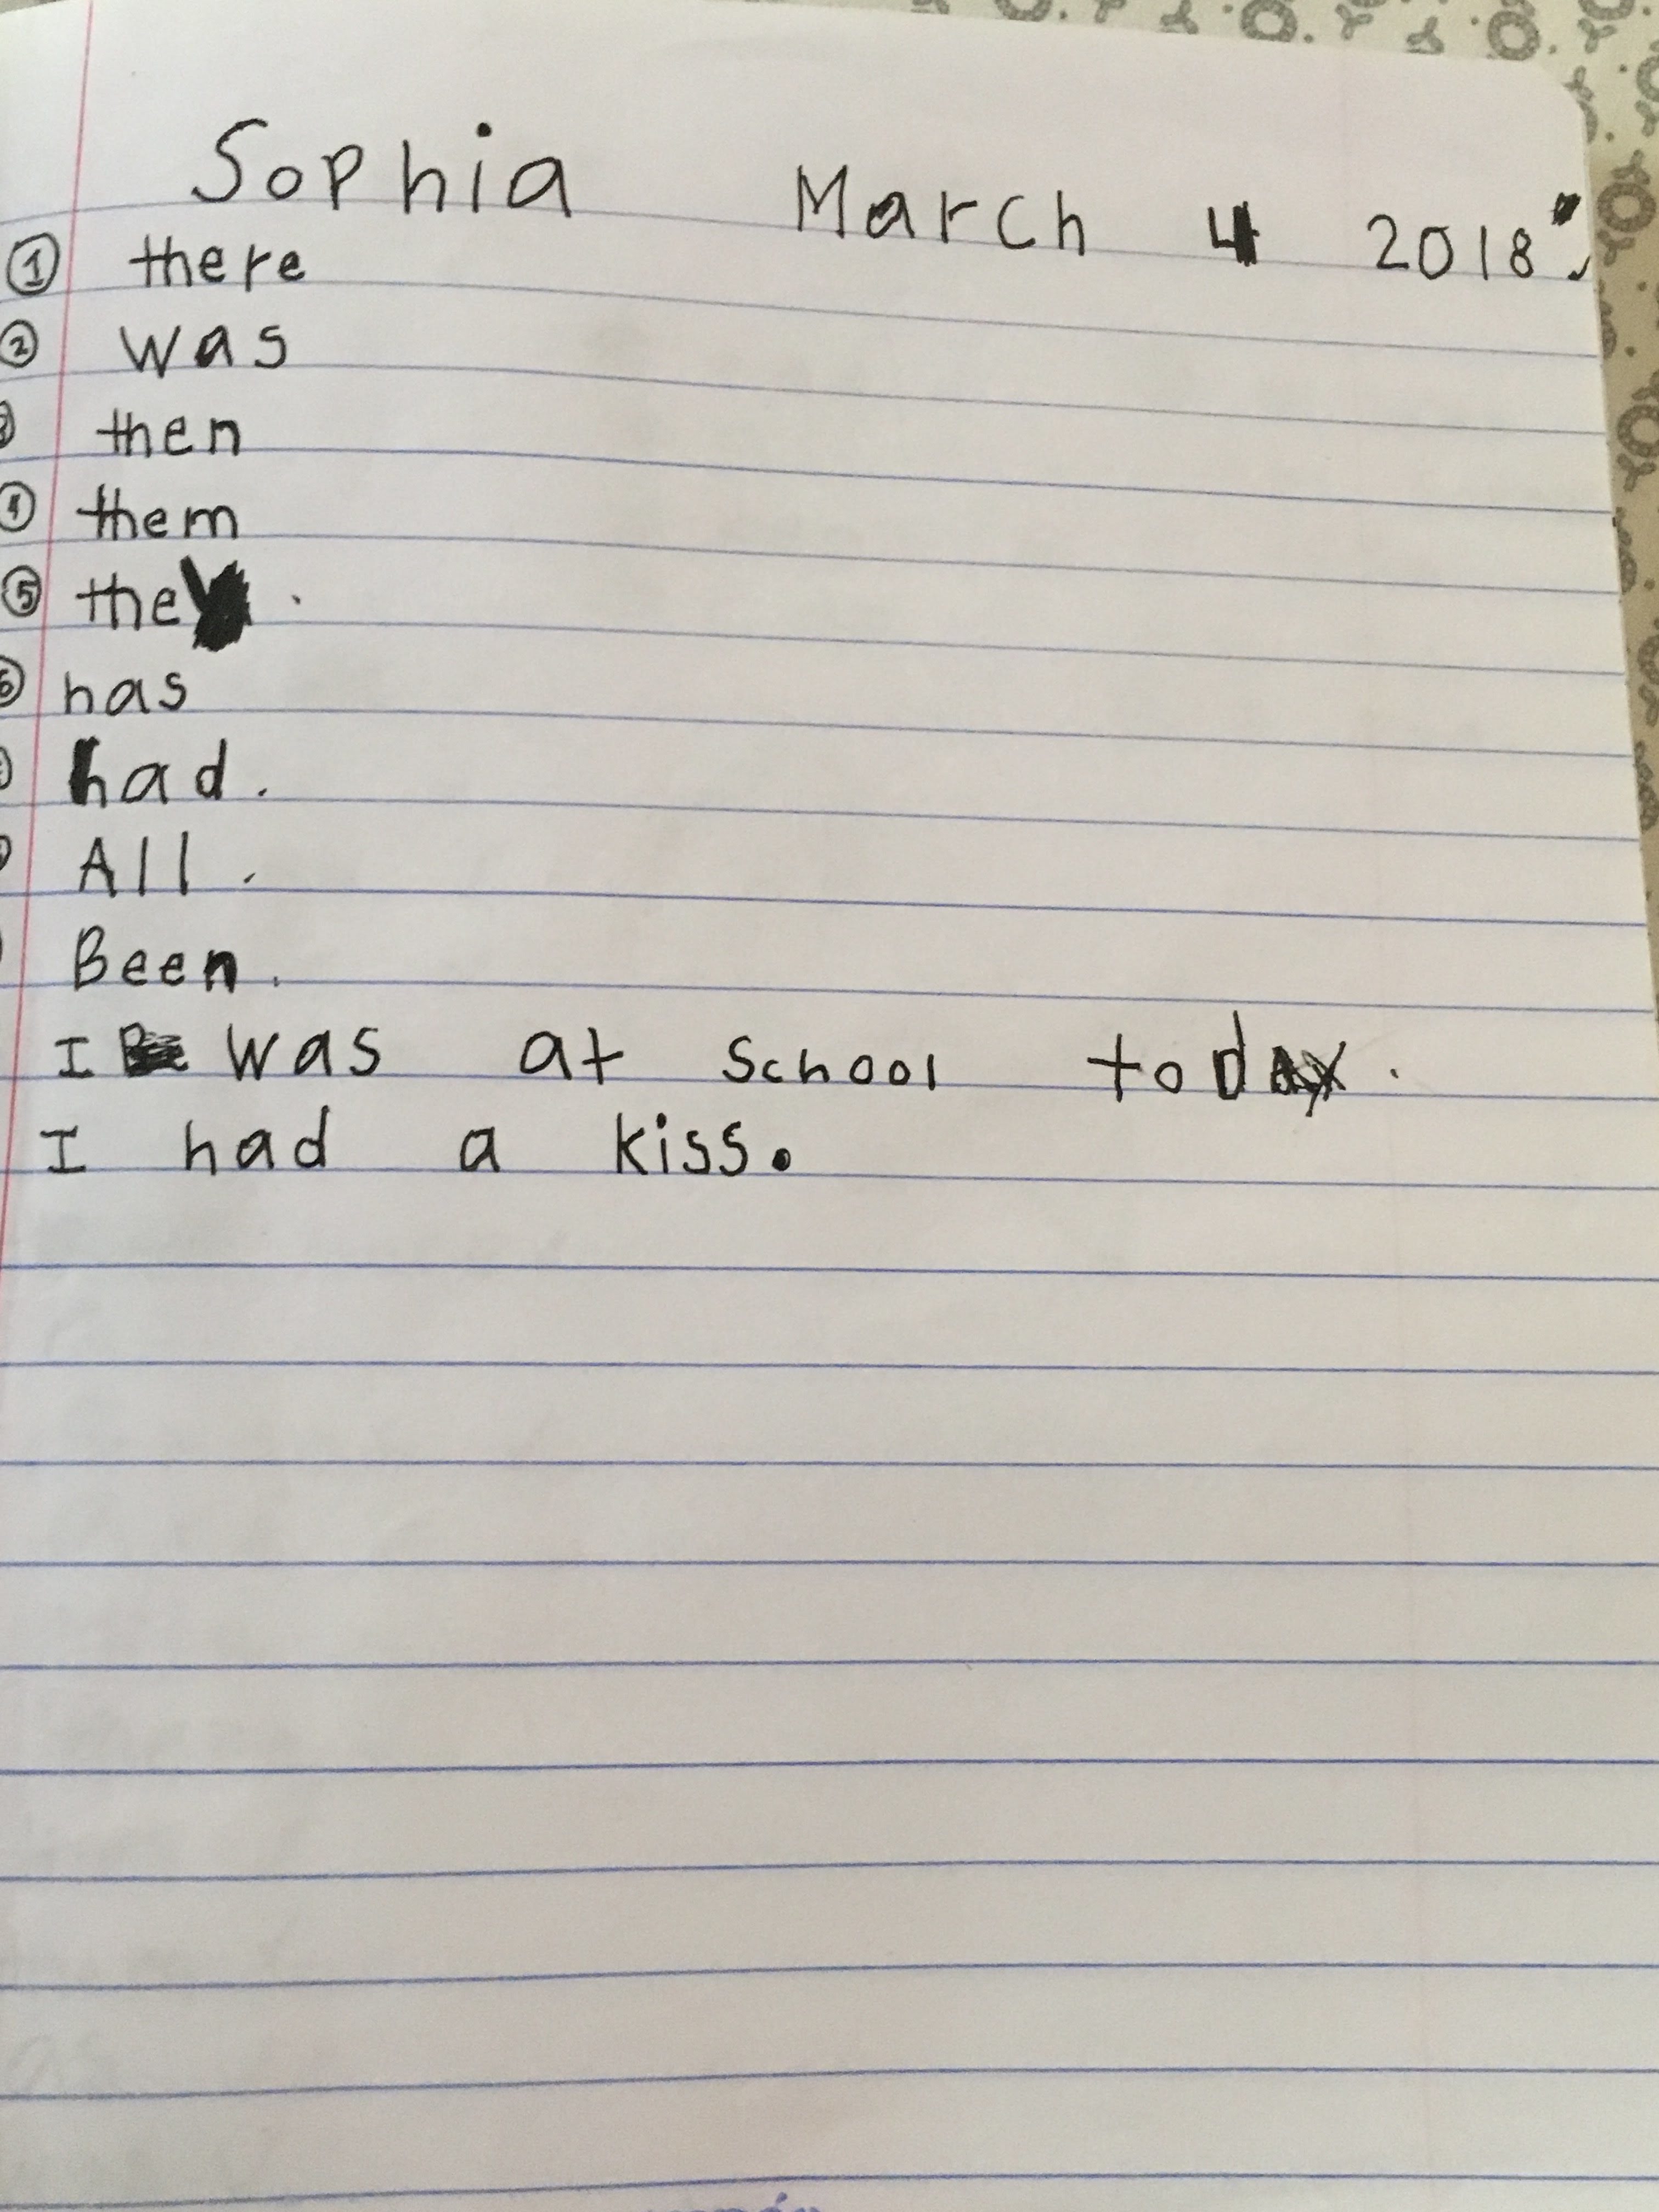 Sophia March 4 2018
① there
② was
③ then
④ them
⑤ the
⑥ has
had.
All.
Been.
I was at school today.
I had a kiss.